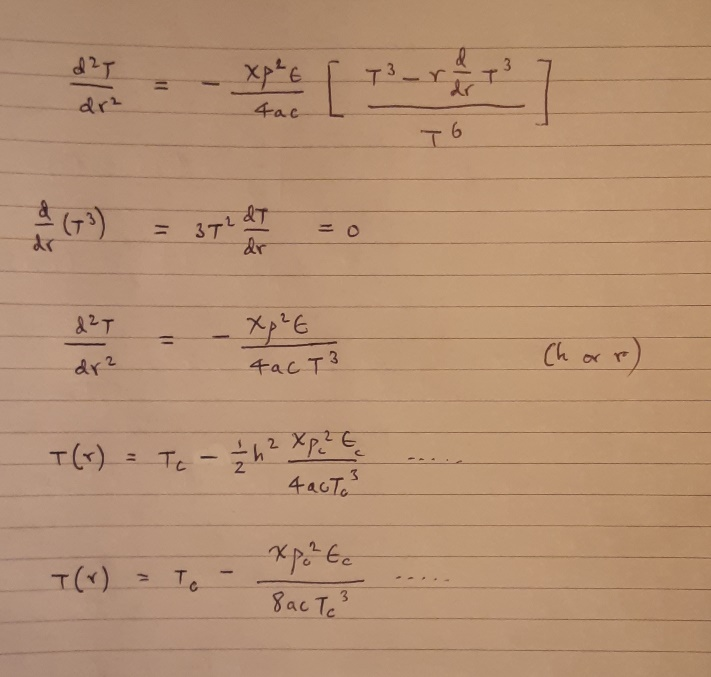 d²T/dr² = - Xρ²ϵ/4ac [ (T³ - r d/dr T³)/T⁶ ]
d/dr (T³) = 3T² dT/dr = 0
d²T/dr² = - Xρ²ϵ/4acT³ (h or r)
T(r) = T_c - 1/2 h² Xρ_c² ϵ_c/4acT_c³ .....
T(r) = T_c - Xρ_c² ϵ_c/8acT_c³ .....